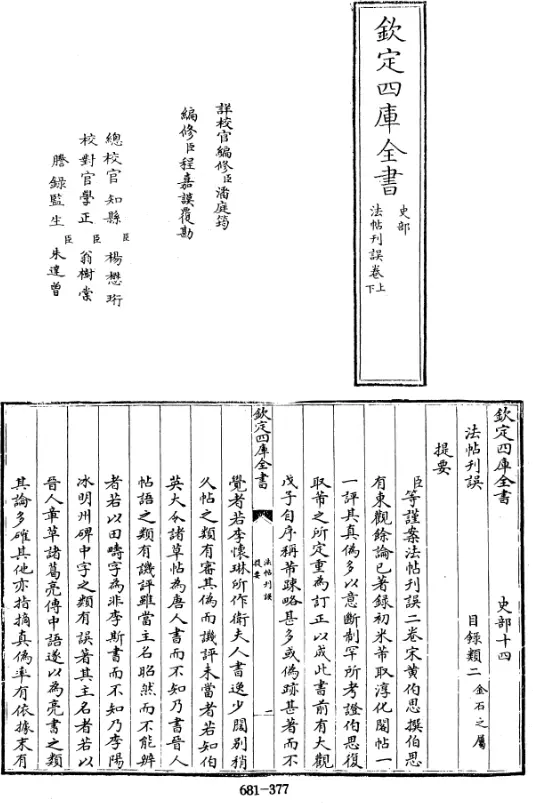 欽定四庫全書
史部
法帖刊誤卷上下
詳校官編修臣潘庭筠
編修臣程嘉謨覆勘
總校官知縣臣楊懋珩
校對官學正臣翁樹棠
謄錄監生臣朱遑曾
欽定四庫全書 史部十四
法帖刊誤 目錄類二金石之屬
提要
臣等謹案法帖刊誤二卷宋黄伯思撰伯思
有東觀餘論已著錄初米芾取淳化閣帖一
一評其真偽多以意斷制罕所考證伯思復
取芾之所定重為訂正以成此書前有大觀
戊子自序稱芾疎略甚多或偽跡甚著而不
欽定四庫全書
法帖刊誤
提要
一
覺者若李懷琳所作衛夫人書逸少闊別稍
久帖之類有審其偽而譏評未當者若知伯
英大令諸草帖為唐人書而不知乃書晉人
帖語之類有譏評雖當主名昭然而不能辨
者若以田疇字為非李斯書而不知乃李陽
冰明州碑中字之類有誤著其主名者若以
晉人章草諸葛亮傳中語遂以為亮書之類
其論多確其他亦指摘真偽率有依據末有
681-377